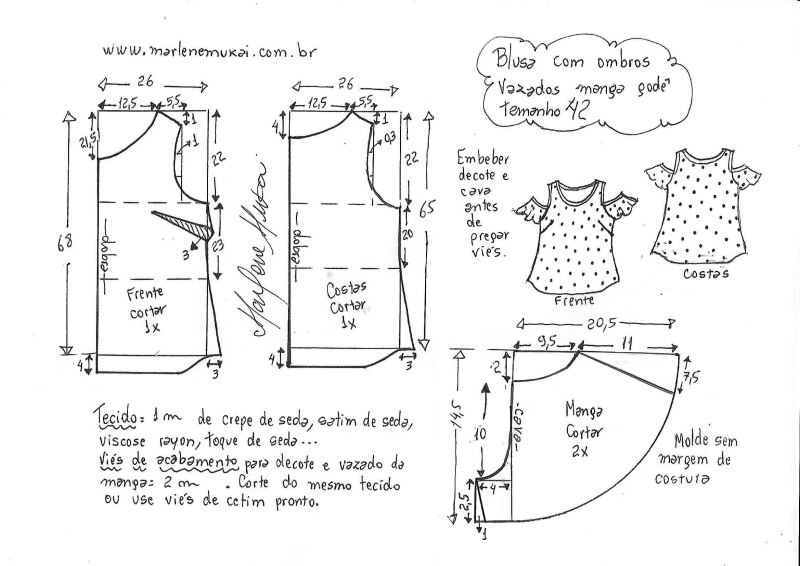 www.marlenemukai.com.br
Blusa com ombros
vazados manga godê
temanho 42
26
12,5
5,5
1
21,5
1
22
68
dobra
23
3
Frente
cortar
1x
4
3
Marlene Mukai
26
12,5
5,5
4
1
0,3
22
65
dobra
20
Costas
Cortar
1x
4
3
Embeber
decote e
cava
antes
de
pregar
viés.
Frente
Costas
20,5
9,5
11
2
7,5
14,5
10
cava
Manga
Cortar
2x
4
2,5
1
Molde sem
margem de
costura
Tecido= 1 m de crepe de seda, satim de seda,
viscose rayon, toque de seda...
viés de acabamento para decote e vazado da
manga= 2 m . Corte do mesmo tecido
ou use viés de cetim pronto.